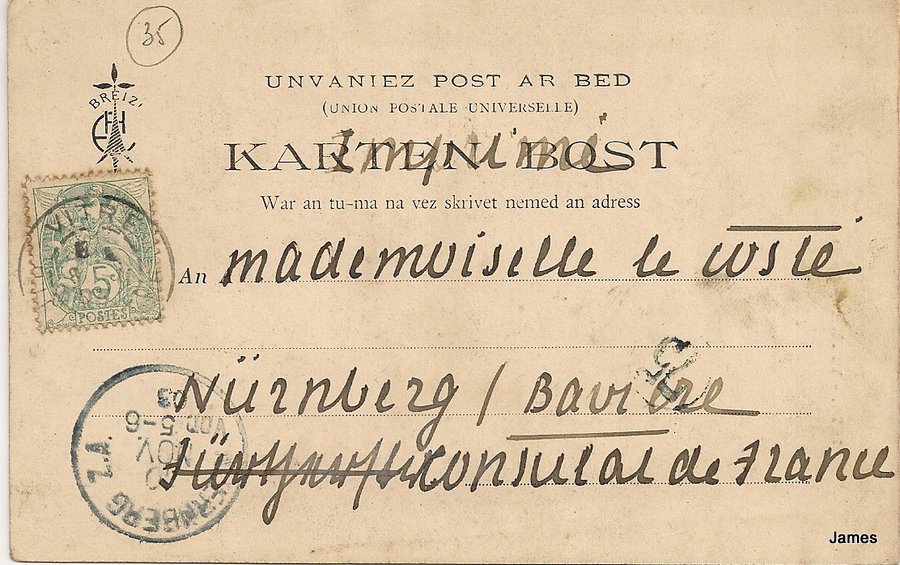 35
BREIZ
UNVANIEZ POST AR BED
(UNION POSTALE UNIVERSELLE)
Imprimé
KARTEN BOST
War an tu-ma na vez skrivet nemed an adress
VITRÉ
5c
POSTES
An mademoiselle le costé
Nürnberg / Bavière
Consulat de France
NUERNBERG Z.A.
NOV.
VOR. 5-6
03
James